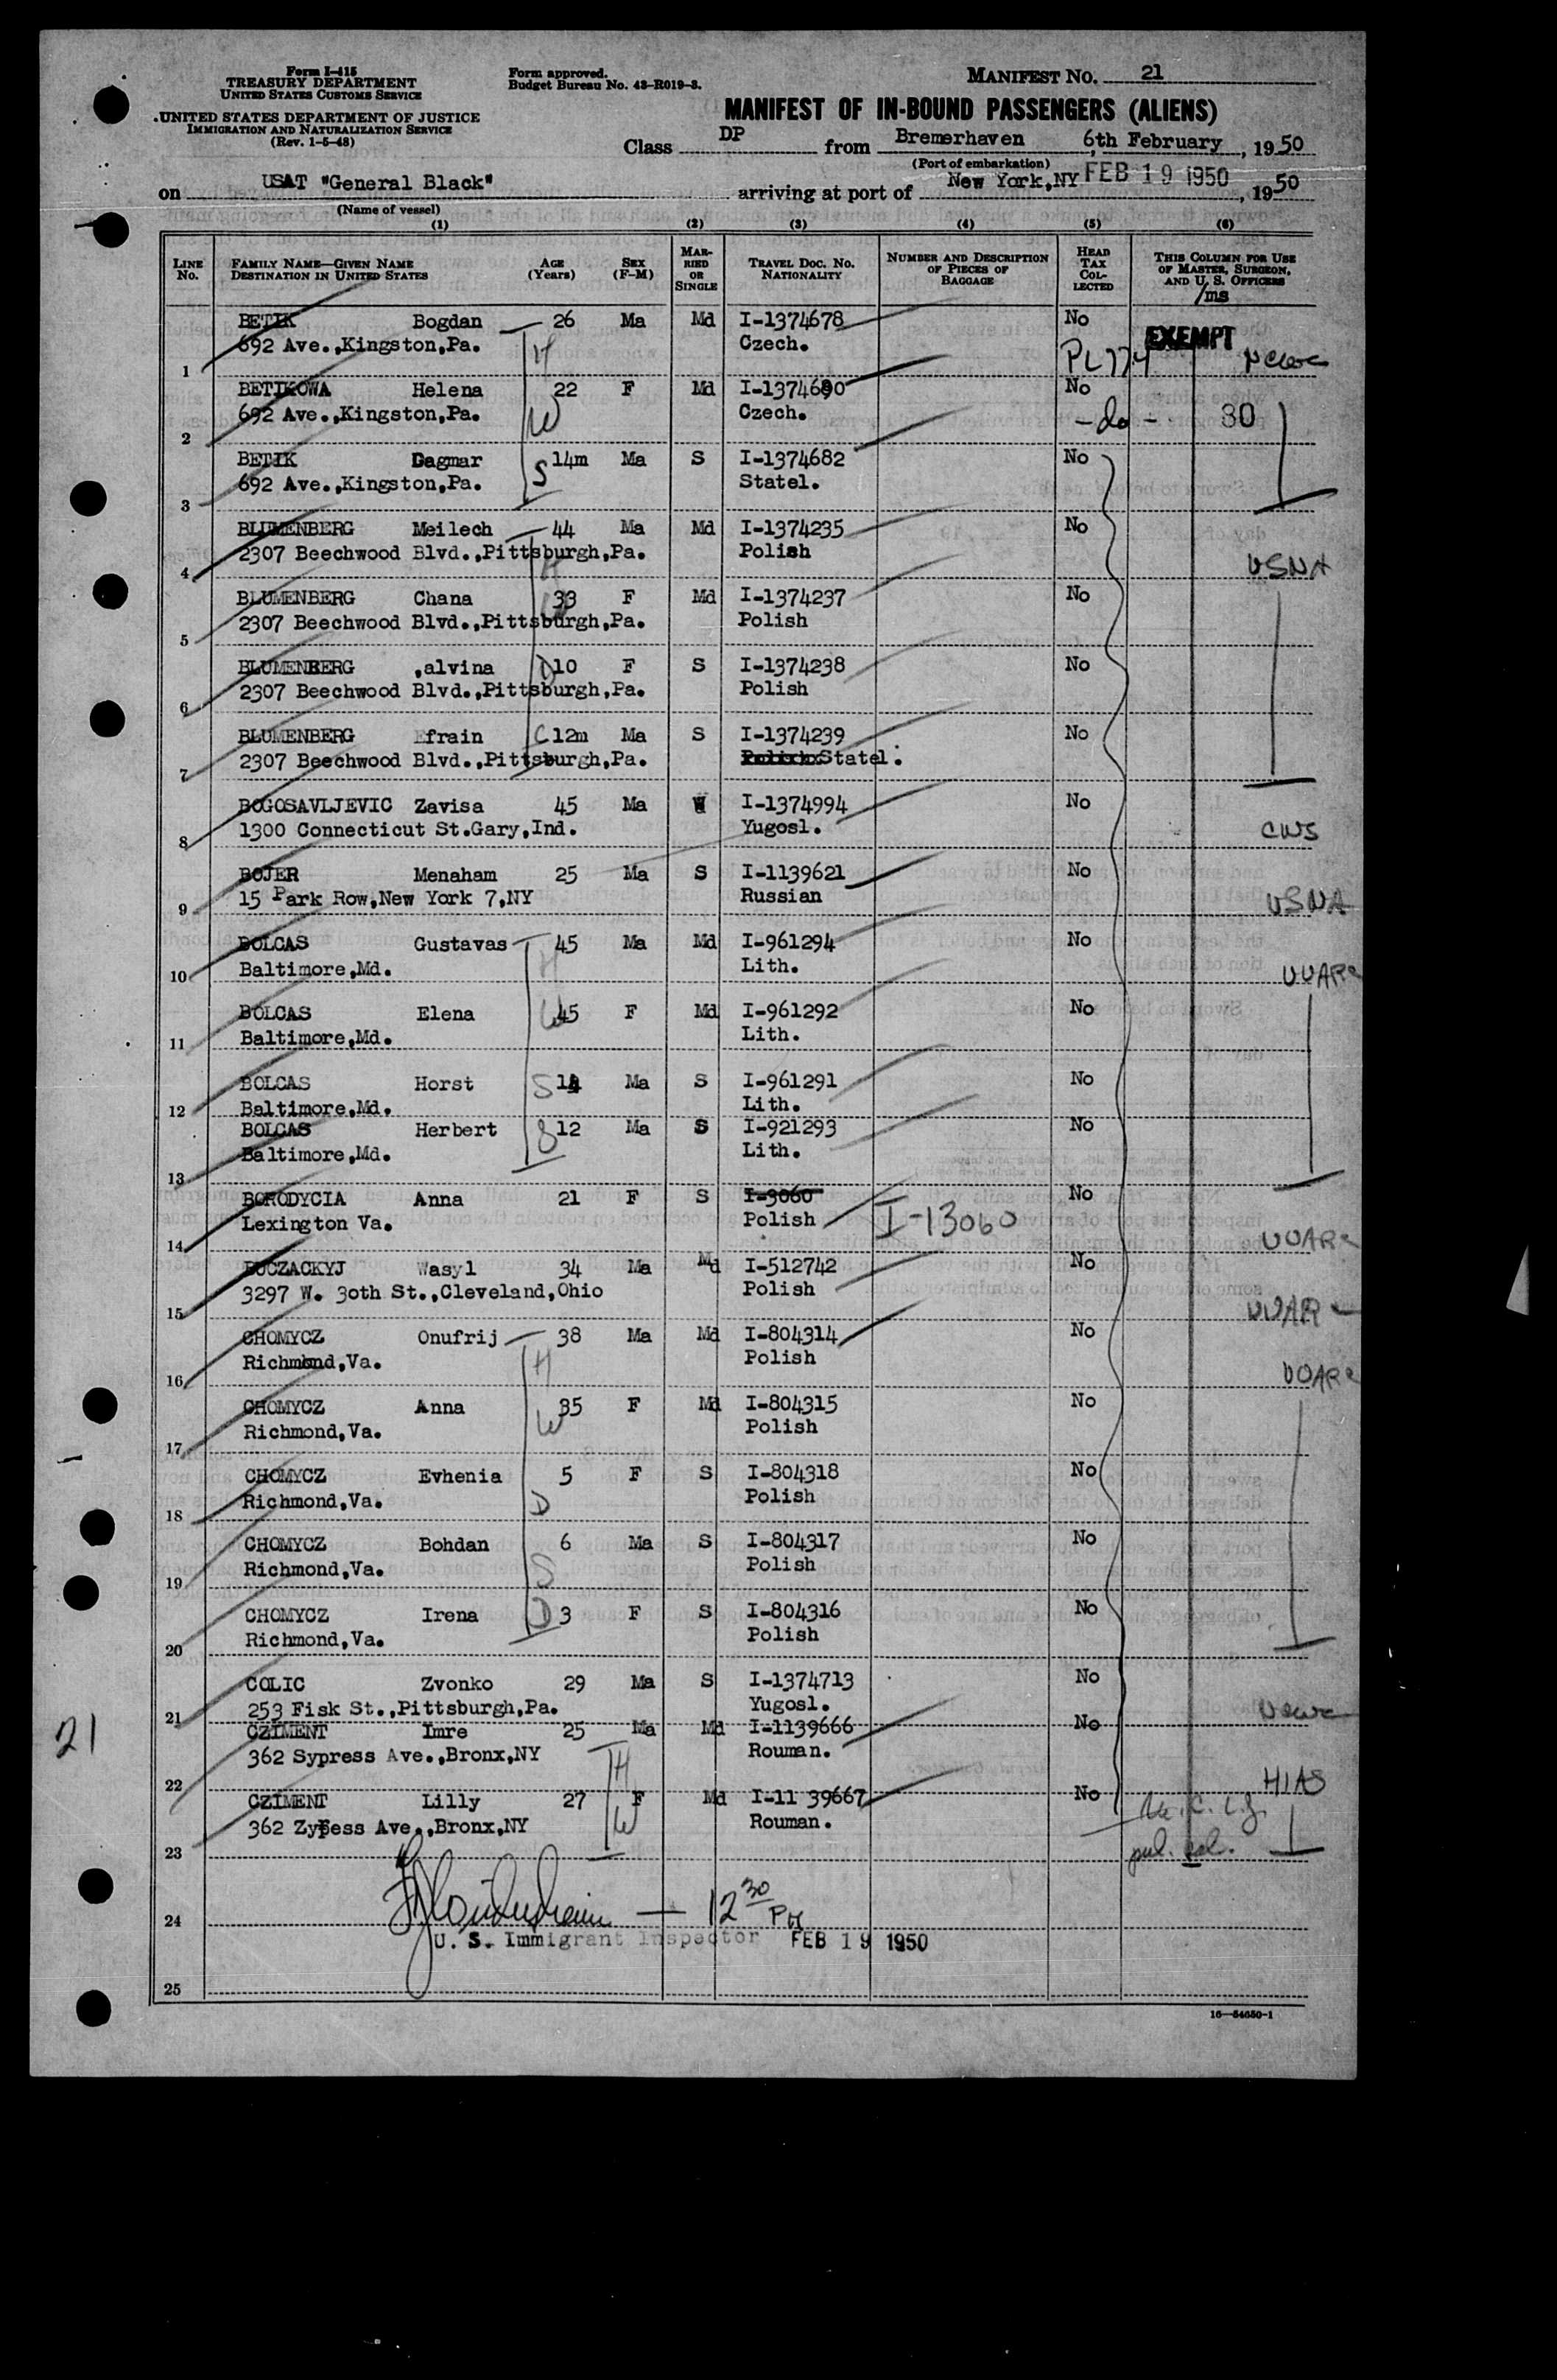 Form I-415
TREASURY DEPARTMENT
UNITED STATES CUSTOMS SERVICE
UNITED STATES DEPARTMENT OF JUSTICE
IMMIGRATION AND NATURALIZATION SERVICE
(Rev. 1-5-48)
Form approved.
Budget Bureau No. 43-R019-3.
MANIFEST No. 21
MANIFEST OF IN-BOUND PASSENGERS (ALIENS)
Class DP from Bremerhaven 6th February, 1950
(Port of embarkation)
on USAT "General Black" arriving at port of New York,NY FEB 19 1950, 1950
(Name of vessel)
(1) (2) (3) (4) (5) (6)
LINE No. FAMILY NAME—GIVEN NAME DESTINATION IN UNITED STATES AGE (Years) SEX (F-M) MARRIED OR SINGLE TRAVEL DOC. No. NATIONALITY NUMBER AND DESCRIPTION OF PIECES OF BAGGAGE HEAD TAX COLLECTED THIS COLUMN FOR USE OF MASTER, SURGEON, AND U. S. OFFICERS
/ms
BETIK Bogdan 26 Ma Md I-1374678 No EXEMPT
1 692 Ave.,Kingston,Pa. H Czech. PL 774 NCWC
BETIKOWA Helena 22 F Md I-1374680 No
2 692 Ave.,Kingston,Pa. W Czech. -do- 30
BETIK Dagmar 14m Ma S I-1374682 No
3 692 Ave.,Kingston,Pa. S Statel.
BLUMENBERG Meilech 44 Ma Md I-1374235 No
4 2307 Beechwood Blvd.,Pittsburgh,Pa. H Polish USNA
BLUMENBERG Chana 33 F Md I-1374237 No
5 2307 Beechwood Blvd.,Pittsburgh,Pa. W Polish
BLUMENBERG ,alvina D 10 F S I-1374238 No
6 2307 Beechwood Blvd.,Pittsburgh,Pa. Polish
BLUMENBERG Efrain C 12m Ma S I-1374239 No
7 2307 Beechwood Blvd.,Pittsburgh,Pa. Statel.
BOGOSAVLJEVIC Zavisa 45 Ma W I-1374994 No
8 1300 Connecticut St.Gary,Ind. Yugosl. CWS
BOJER Menaham 25 Ma S I-1139621 No
9 15 Park Row,New York 7,NY Russian USNA
BOLCAS Gustavas 45 Ma Md I-961294 No
10 Baltimore,Md. H Lith. UUARC
BOLCAS Elena W 45 F Md I-961292 No
11 Baltimore,Md. Lith.
BOLCAS Horst S 14 Ma S I-961291 No
12 Baltimore,Md. Lith.
BOLCAS Herbert S 12 Ma S I-921293 No
13 Baltimore,Md. Lith.
BORODYCIA Anna 21 F S I-3060 No
14 Lexington Va. Polish I-13060 UUARC
BUCZACKYJ Wasyl 34 Ma Md I-512742 No
15 3297 W. 30th St.,Cleveland,Ohio Polish UUARC
CHOMYCZ Onufrij 38 Ma Md I-804314 No
16 Richmond,Va. H Polish UUARC
CHOMYCZ Anna 35 F Md I-804315 No
17 Richmond,Va. W Polish
CHOMYCZ Evhenia 5 F S I-804318 No
18 Richmond,Va. D Polish
CHOMYCZ Bohdan 6 Ma S I-804317 No
19 Richmond,Va. S Polish
CHOMYCZ Irena D 3 F S I-804316 No
20 Richmond,Va. Polish
COLIC Zvonko 29 Ma S I-1374713 No
21 253 Fisk St.,Pittsburgh,Pa. Yugosl. NCWC
CZIMENT Imre 25 Ma Md I-1139666 No
22 362 Sypress Ave.,Bronx,NY H Rouman. HIAS
CZIMENT Lilly 27 F Md I-11 39667 No
23 362 Zypess Ave.,Bronx,NY W Rouman.
21
24 12 30 PM
U. S. Immigrant Inspector FEB 19 1950
25
16—54650-1